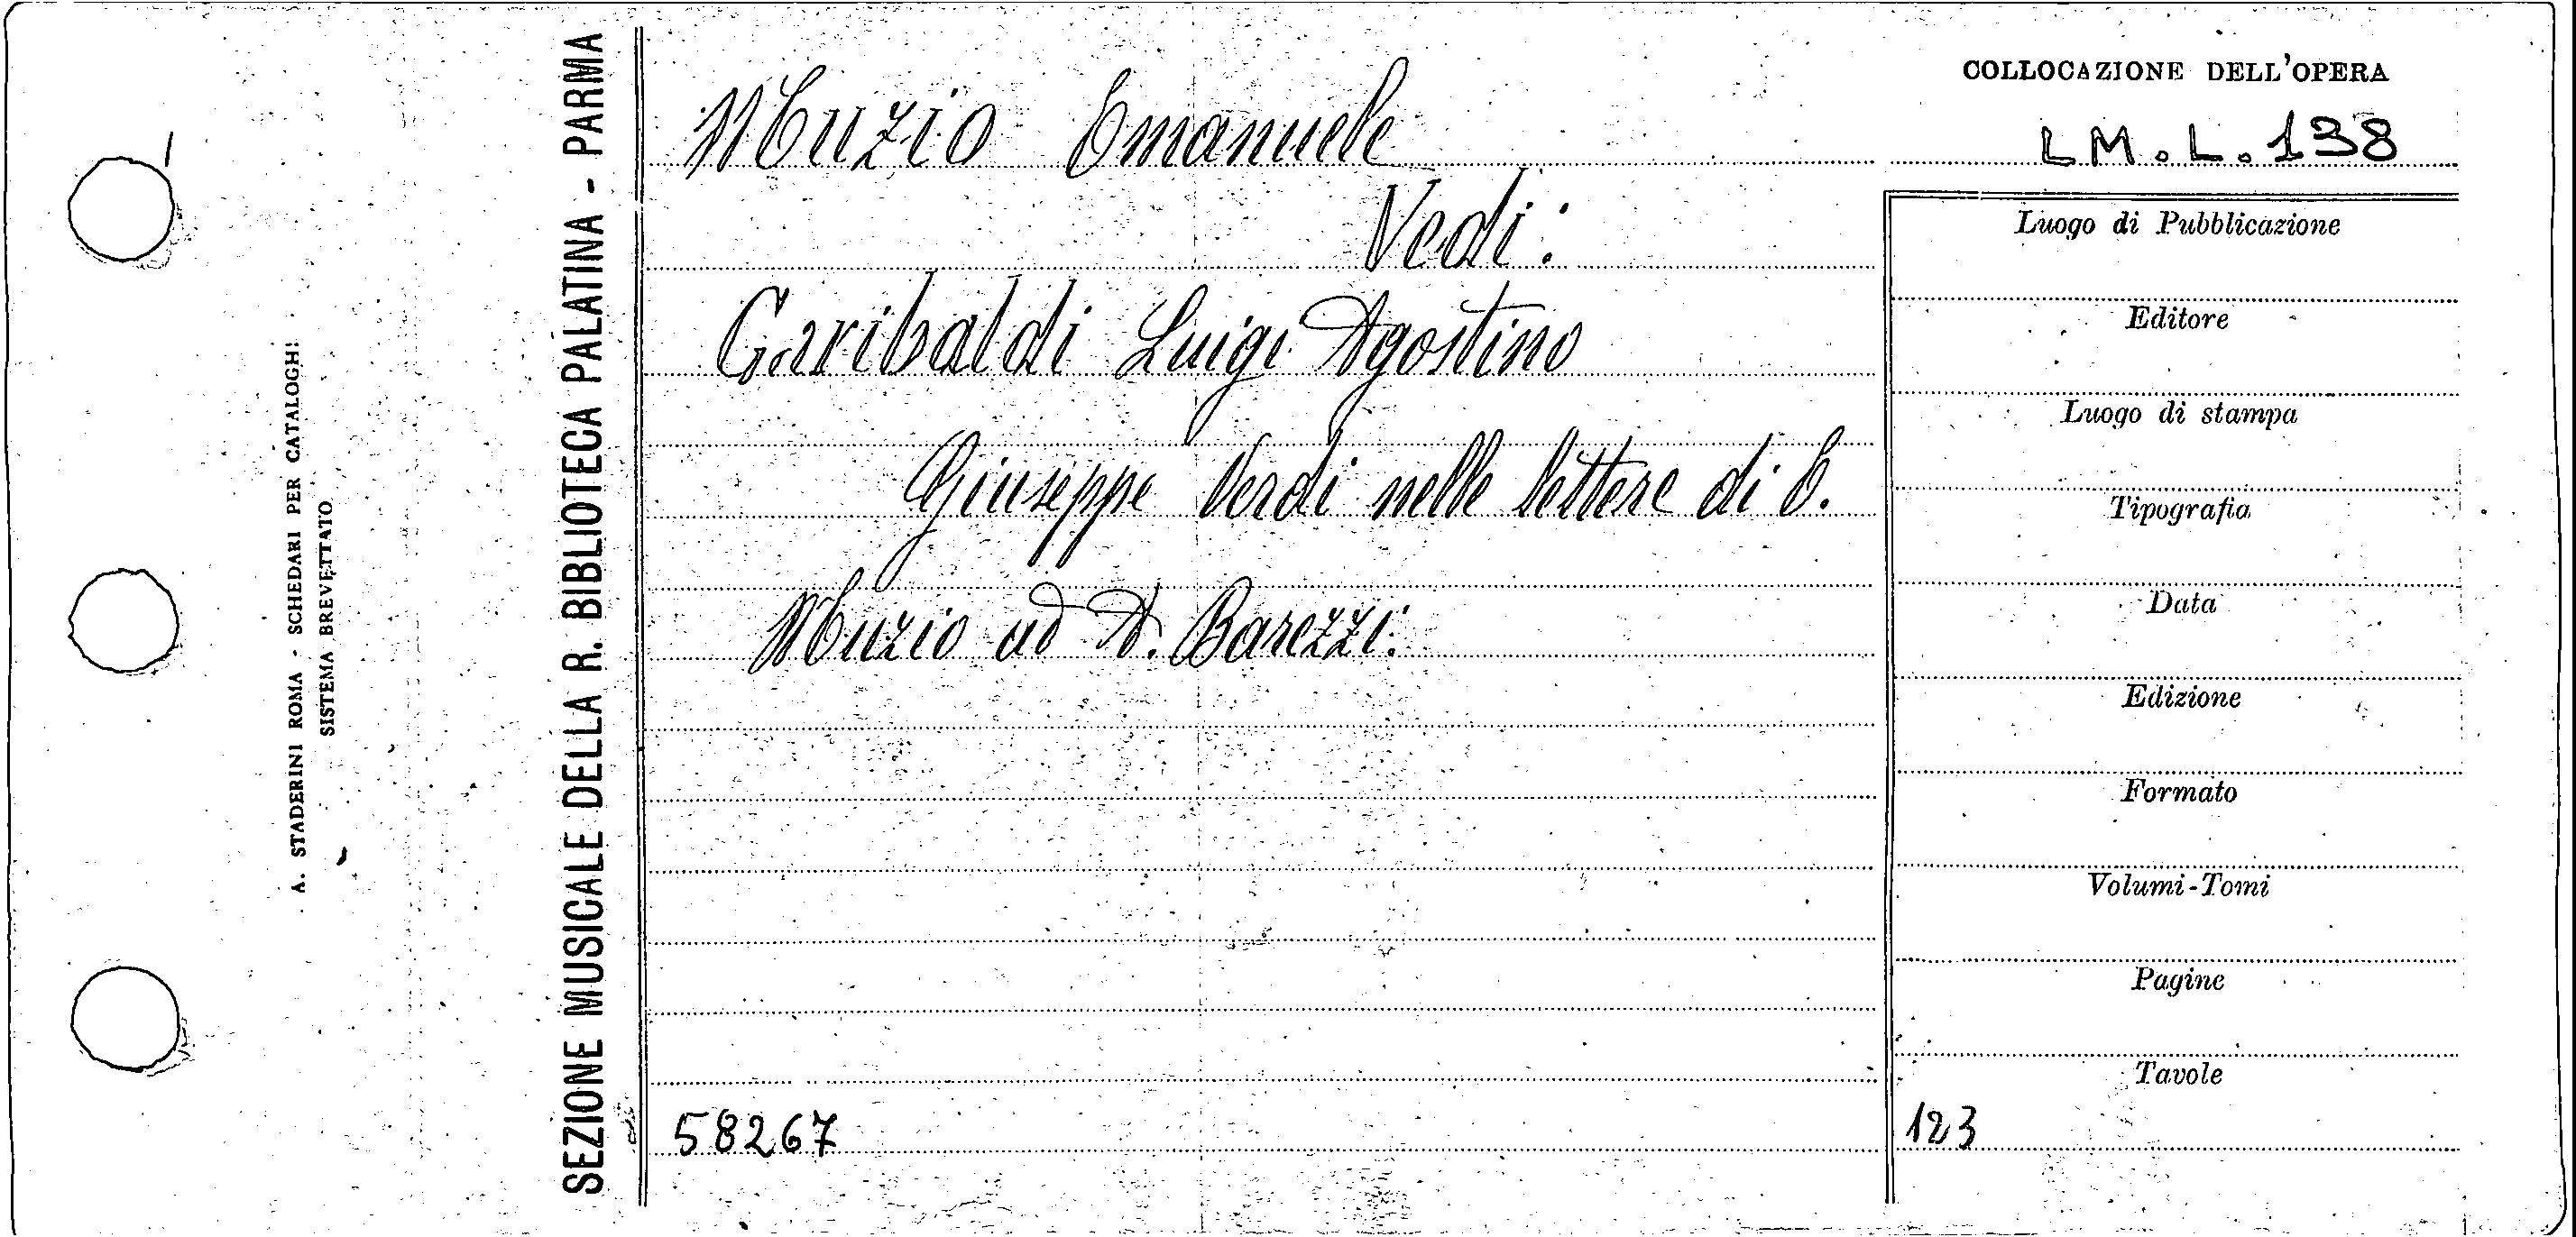 A. STADERINI ROMA - SCHEDARI PER CATALOGHI
SISTEMA BREVETTATO
SEZIONE MUSICALE DELLA R. BIBLIOTECA PALATINA - PARMA
Muzio Emanuele
Vedi:
Garibaldi Luigi Agostino
Giuseppe Verdi nelle lettere di E.
Muzio ad A. Barezzi.
58267
COLLOCAZIONE DELL'OPERA
LM.L.138
Luogo di Pubblicazione
Editore
Luogo di stampa
Tipografia
Data
Edizione
Formato
Volumi-Tomi
Pagine
Tavole
123